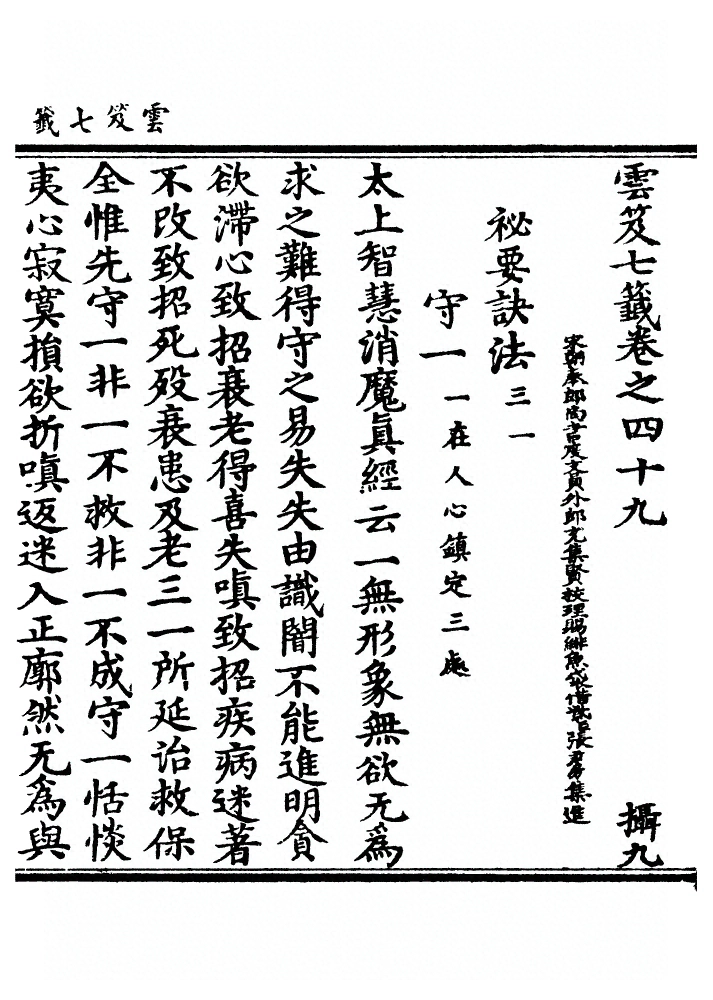 雲笈七籤
雲笈七籤卷之四十九 攝九
宋朝奉郎尚書度支員外郎充集賢校理賜緋魚袋借紫臣張君房集進
祕要訣法 三一
守一 一在人心鎮定三處
太上智慧消魔真經云一無形象無欲无為
求之難得守之易失失由識闇不能進明貪
欲滯心致招衰老得喜失嗔致招疾病迷著
不改致招死殁衰患及老三一所延治救保
全惟先守一非一不救非一不成守一恬惔
夷心寂寞損欲折嗔返迷入正廓然无為與